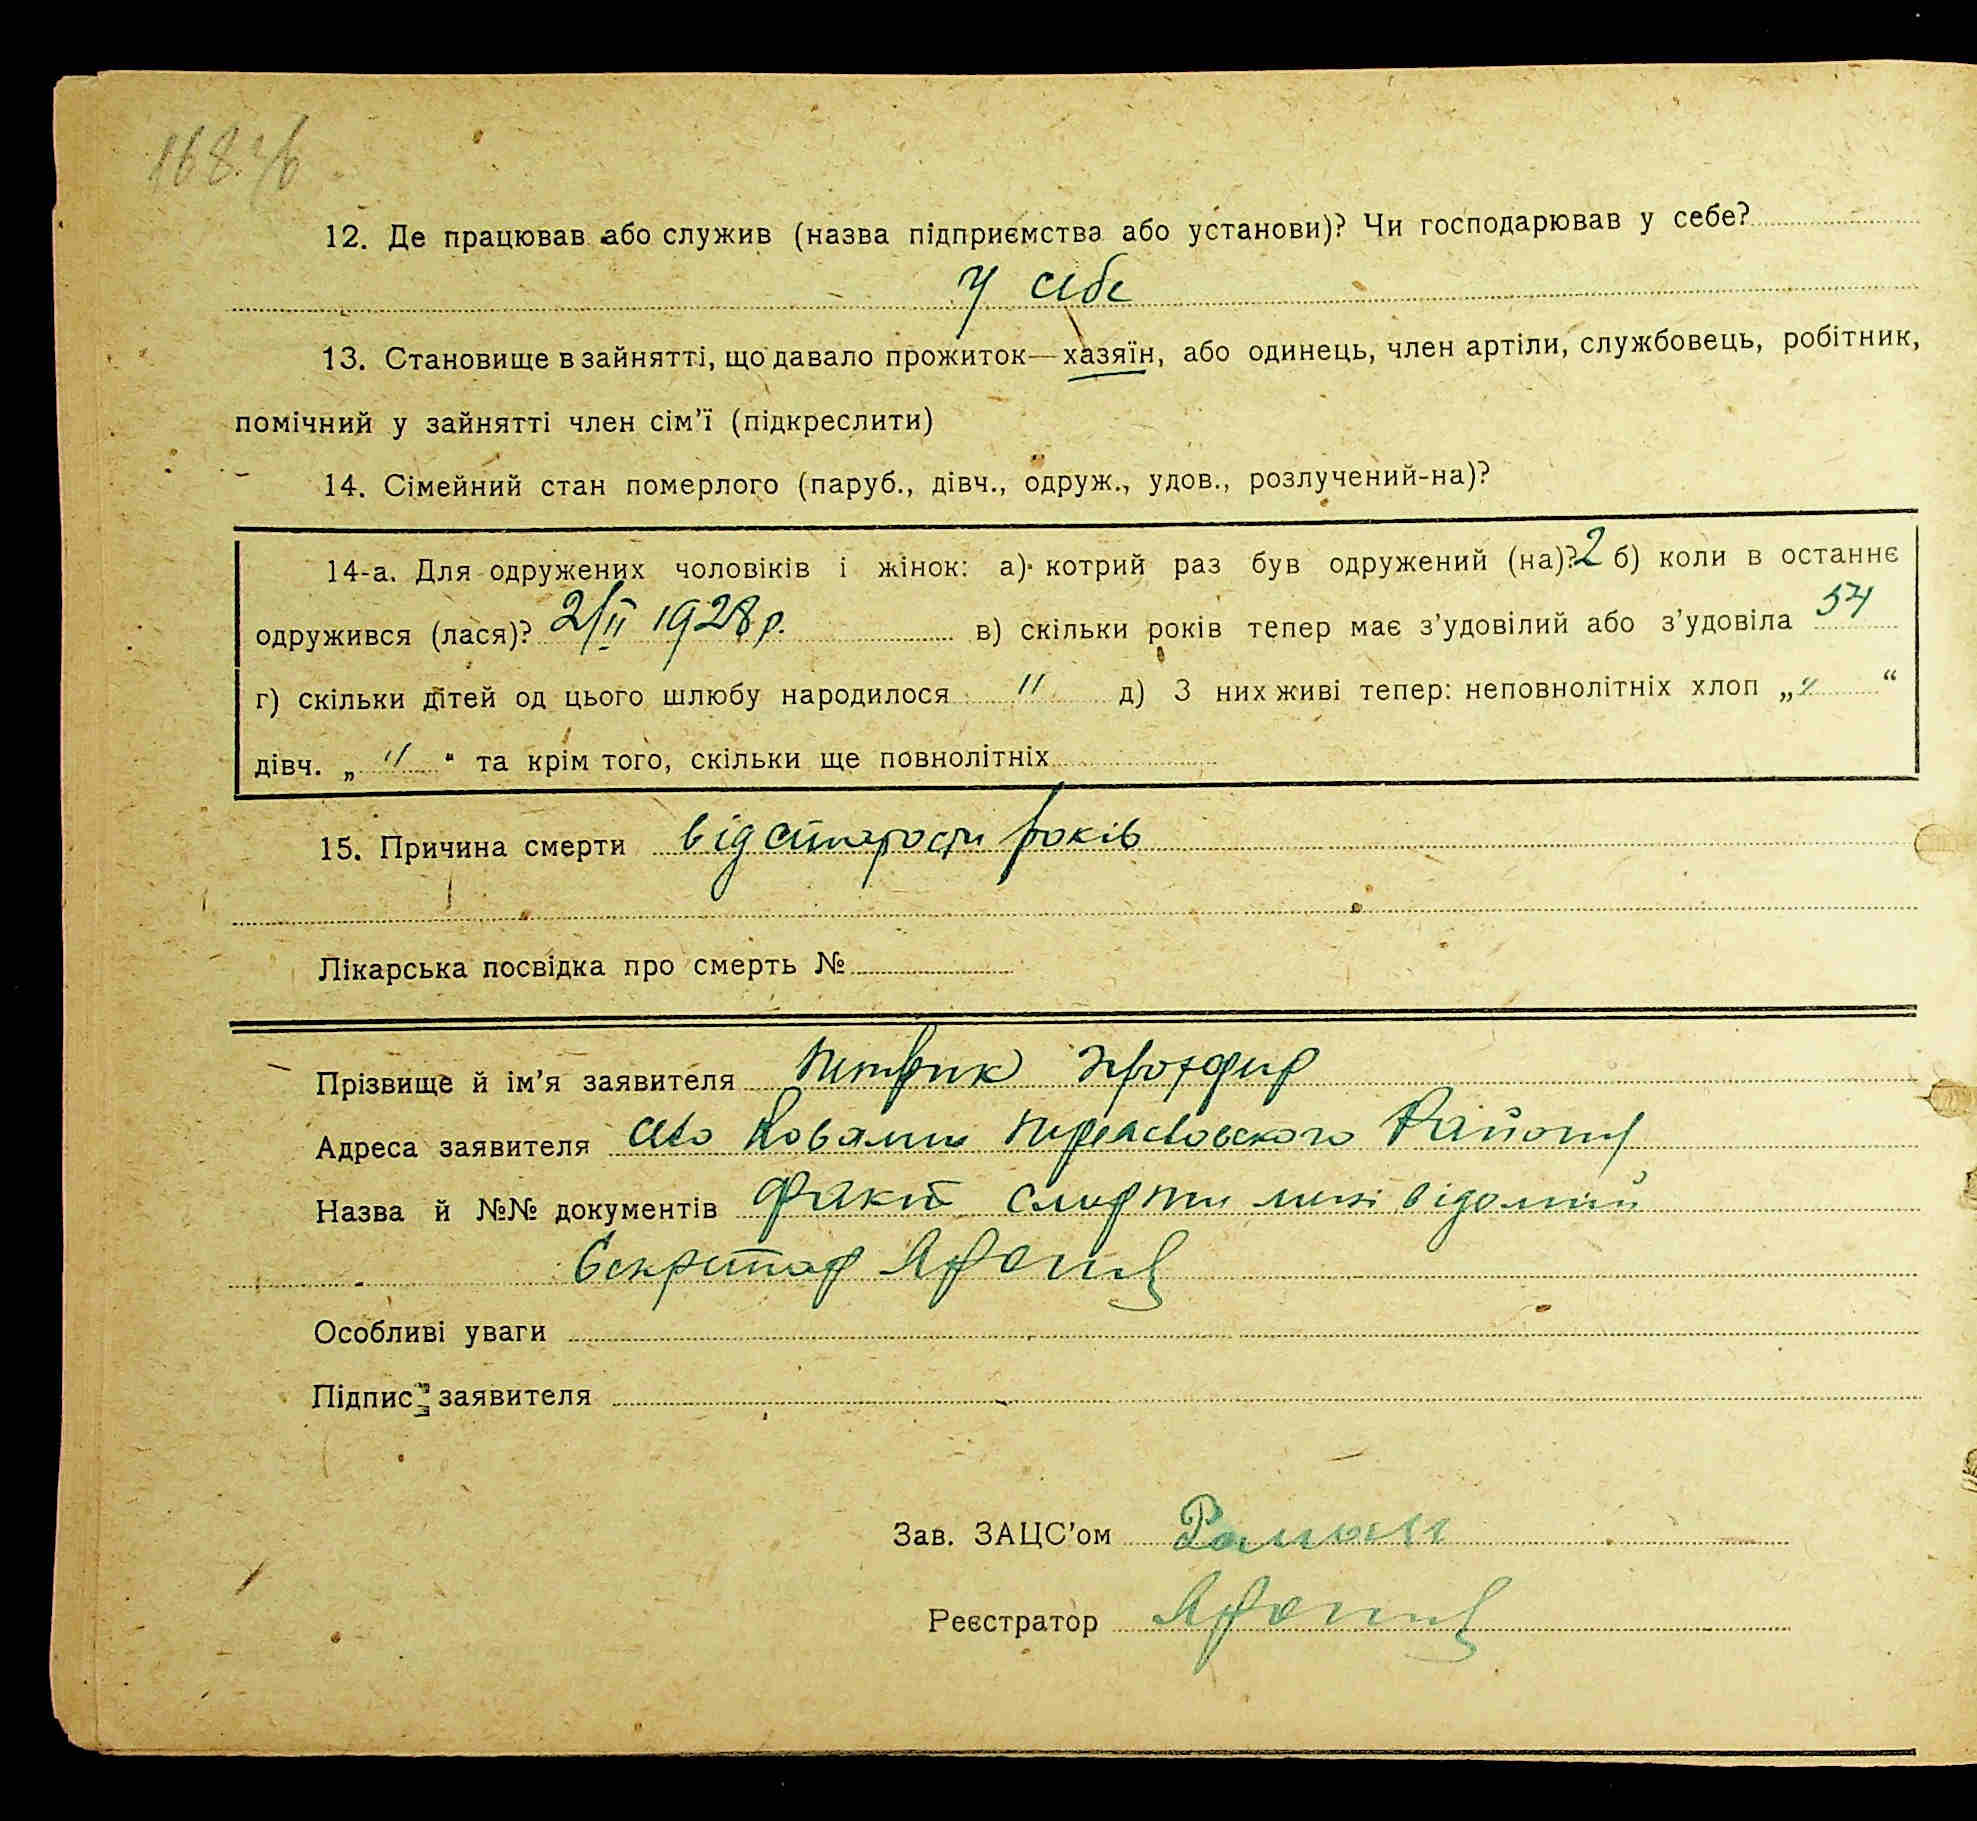 168 зв
12. Де працював або служив (назва підприємства або установи)? Чи господарював у себе?
у себе
13. Становище в зайнятті, що давало прожиток—хазяїн, або одинець, член артіли, службовець, робітник,
помічний у зайнятті член сім'ї (підкреслити)
14. Сімейний стан померлого (паруб., дівч., одруж., удов., розлучений-на)?
14-а. Для одружених чоловіків і жінок: а) котрий раз був одружений (на)? 2 б) коли в останнє
одружився (лася)? 2/II 1928 р. в) скільки років тепер має з'удовілий або з'удовіла 54
г) скільки дітей од цього шлюбу народилося " д) З них живі тепер: неповнолітніх хлоп „ " “
дівч. „ " “ та крім того, скільки ще повнолітніх
15. Причина смерти від старости років
Лікарська посвідка про смерть №
Прізвище й ім'я заявителя Петрик
Адреса заявителя село Ковалин Переяславського Району
Назва й №№ документів факт смерти мені відомий
Секретар
Особливі уваги
Підпис заявителя
Зав. ЗАЦС'ом
Реєстратор